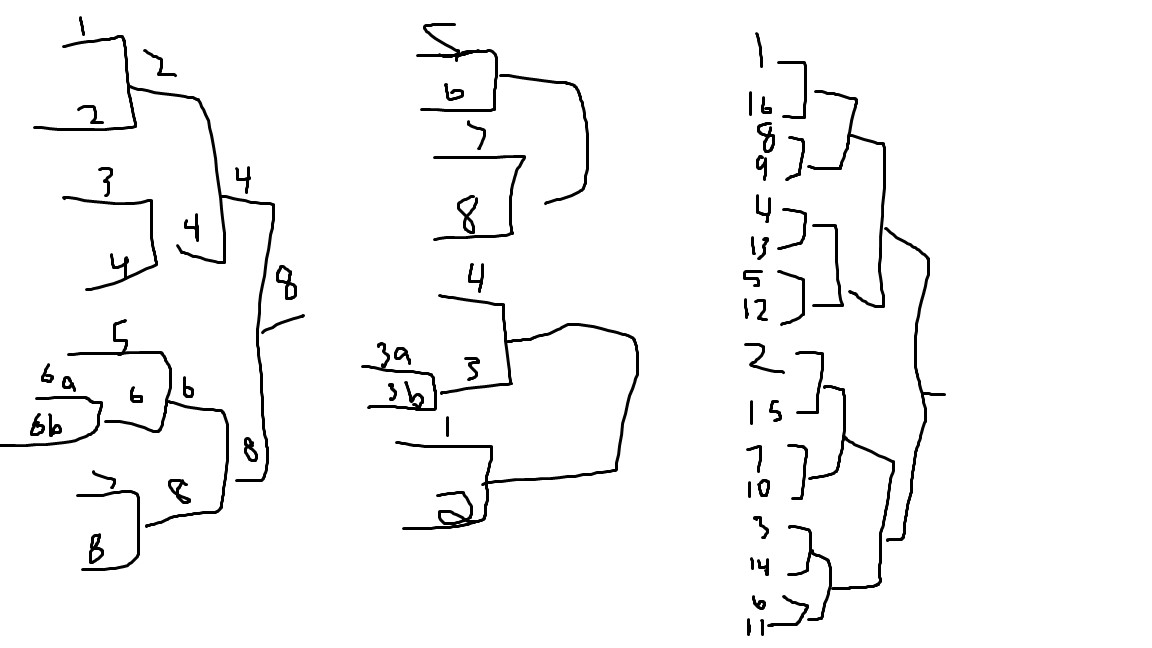 1
2
2
3
4
4
4
5
6a
6b
6
6
7
8
8
8
8
5
6
7
8
4
3a
3b
3
1
2
1
16
8
9
4
13
5
12
2
15
7
10
3
14
6
11